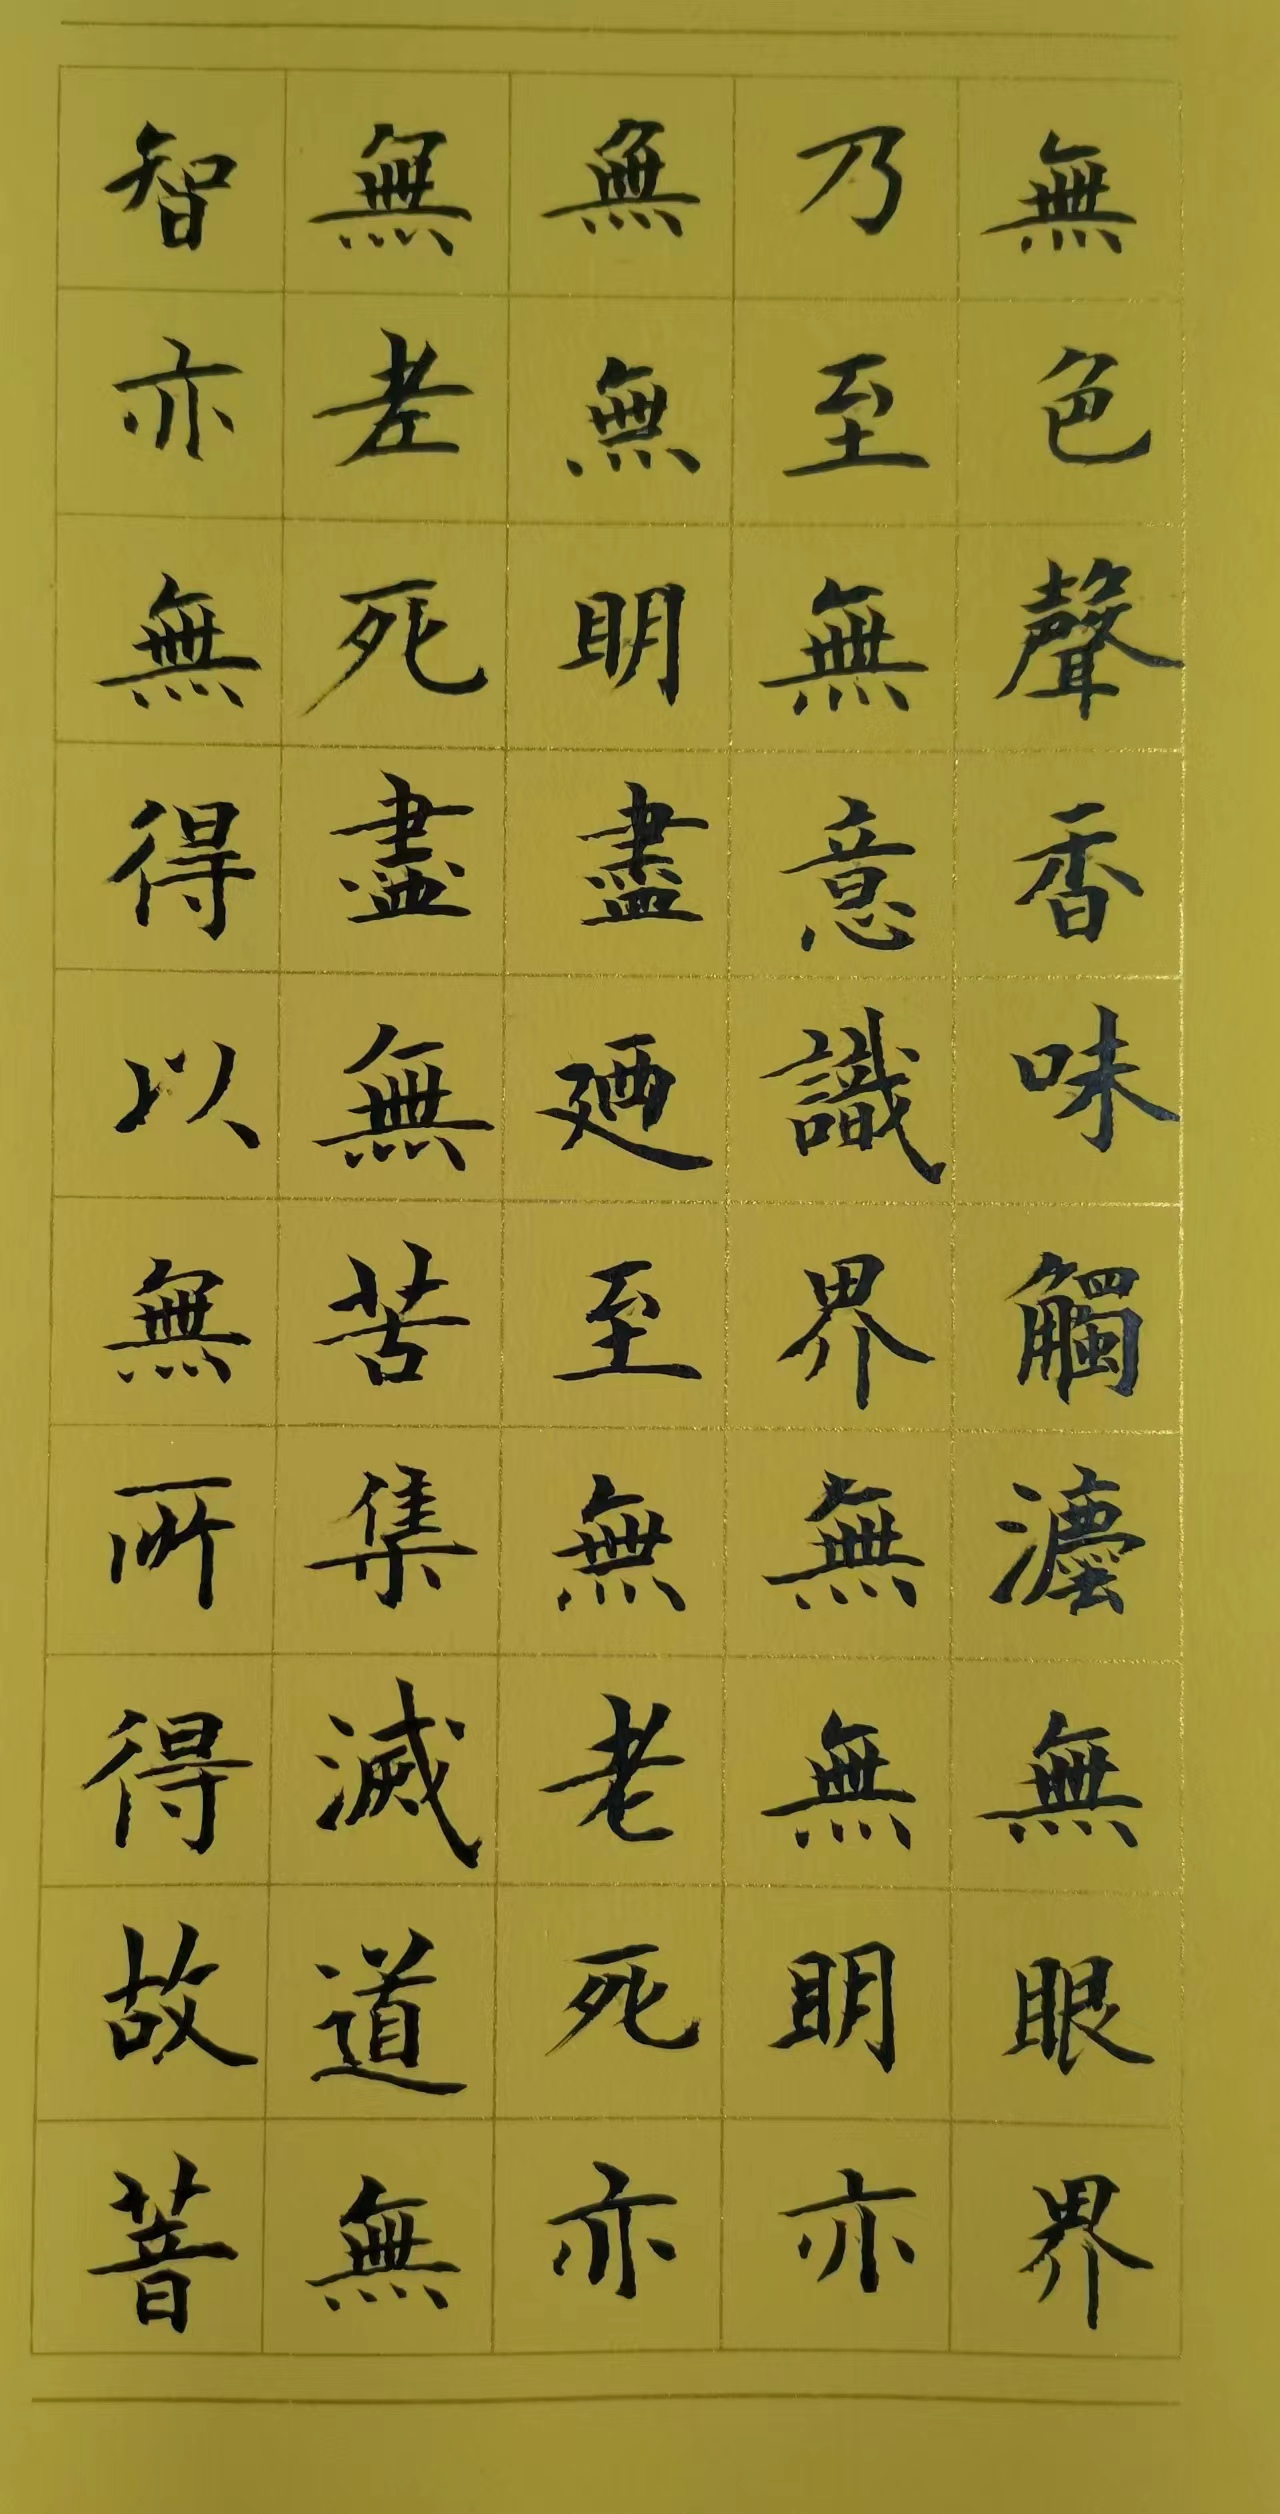 無色聲香味觸灋無眼界
乃至無意識界無無明亦
無無明盡廼至無老死亦
無老死盡無苦集滅道無
智亦無得以無所得故菩